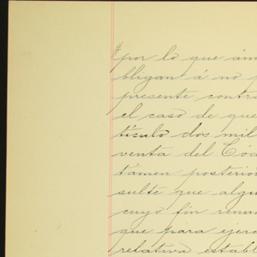 por lo que ám
bligan á no p
presente contra
el caso de que
tículo dos mil
venta del Cód
támen posterio
sulte que algu
cuyo fin renun
que para ejerc
relativa establ